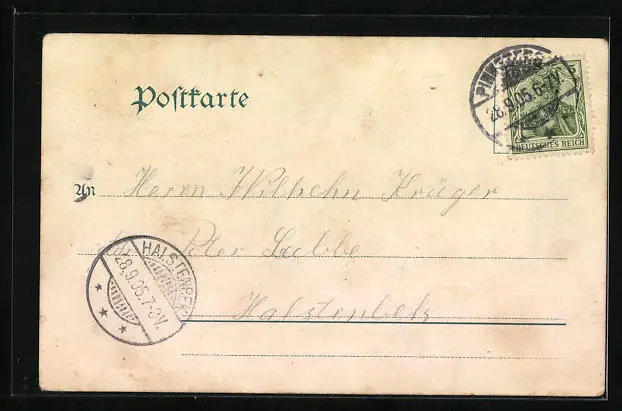 Postkarte
PINNEBERG
28.9.05.6-7V.
5
DEUTSCHES REICH
An Herrn Wilhelm Krüger
Lübbe
Halstenbek
HALSTENBEK
28.9.05.7-8V.